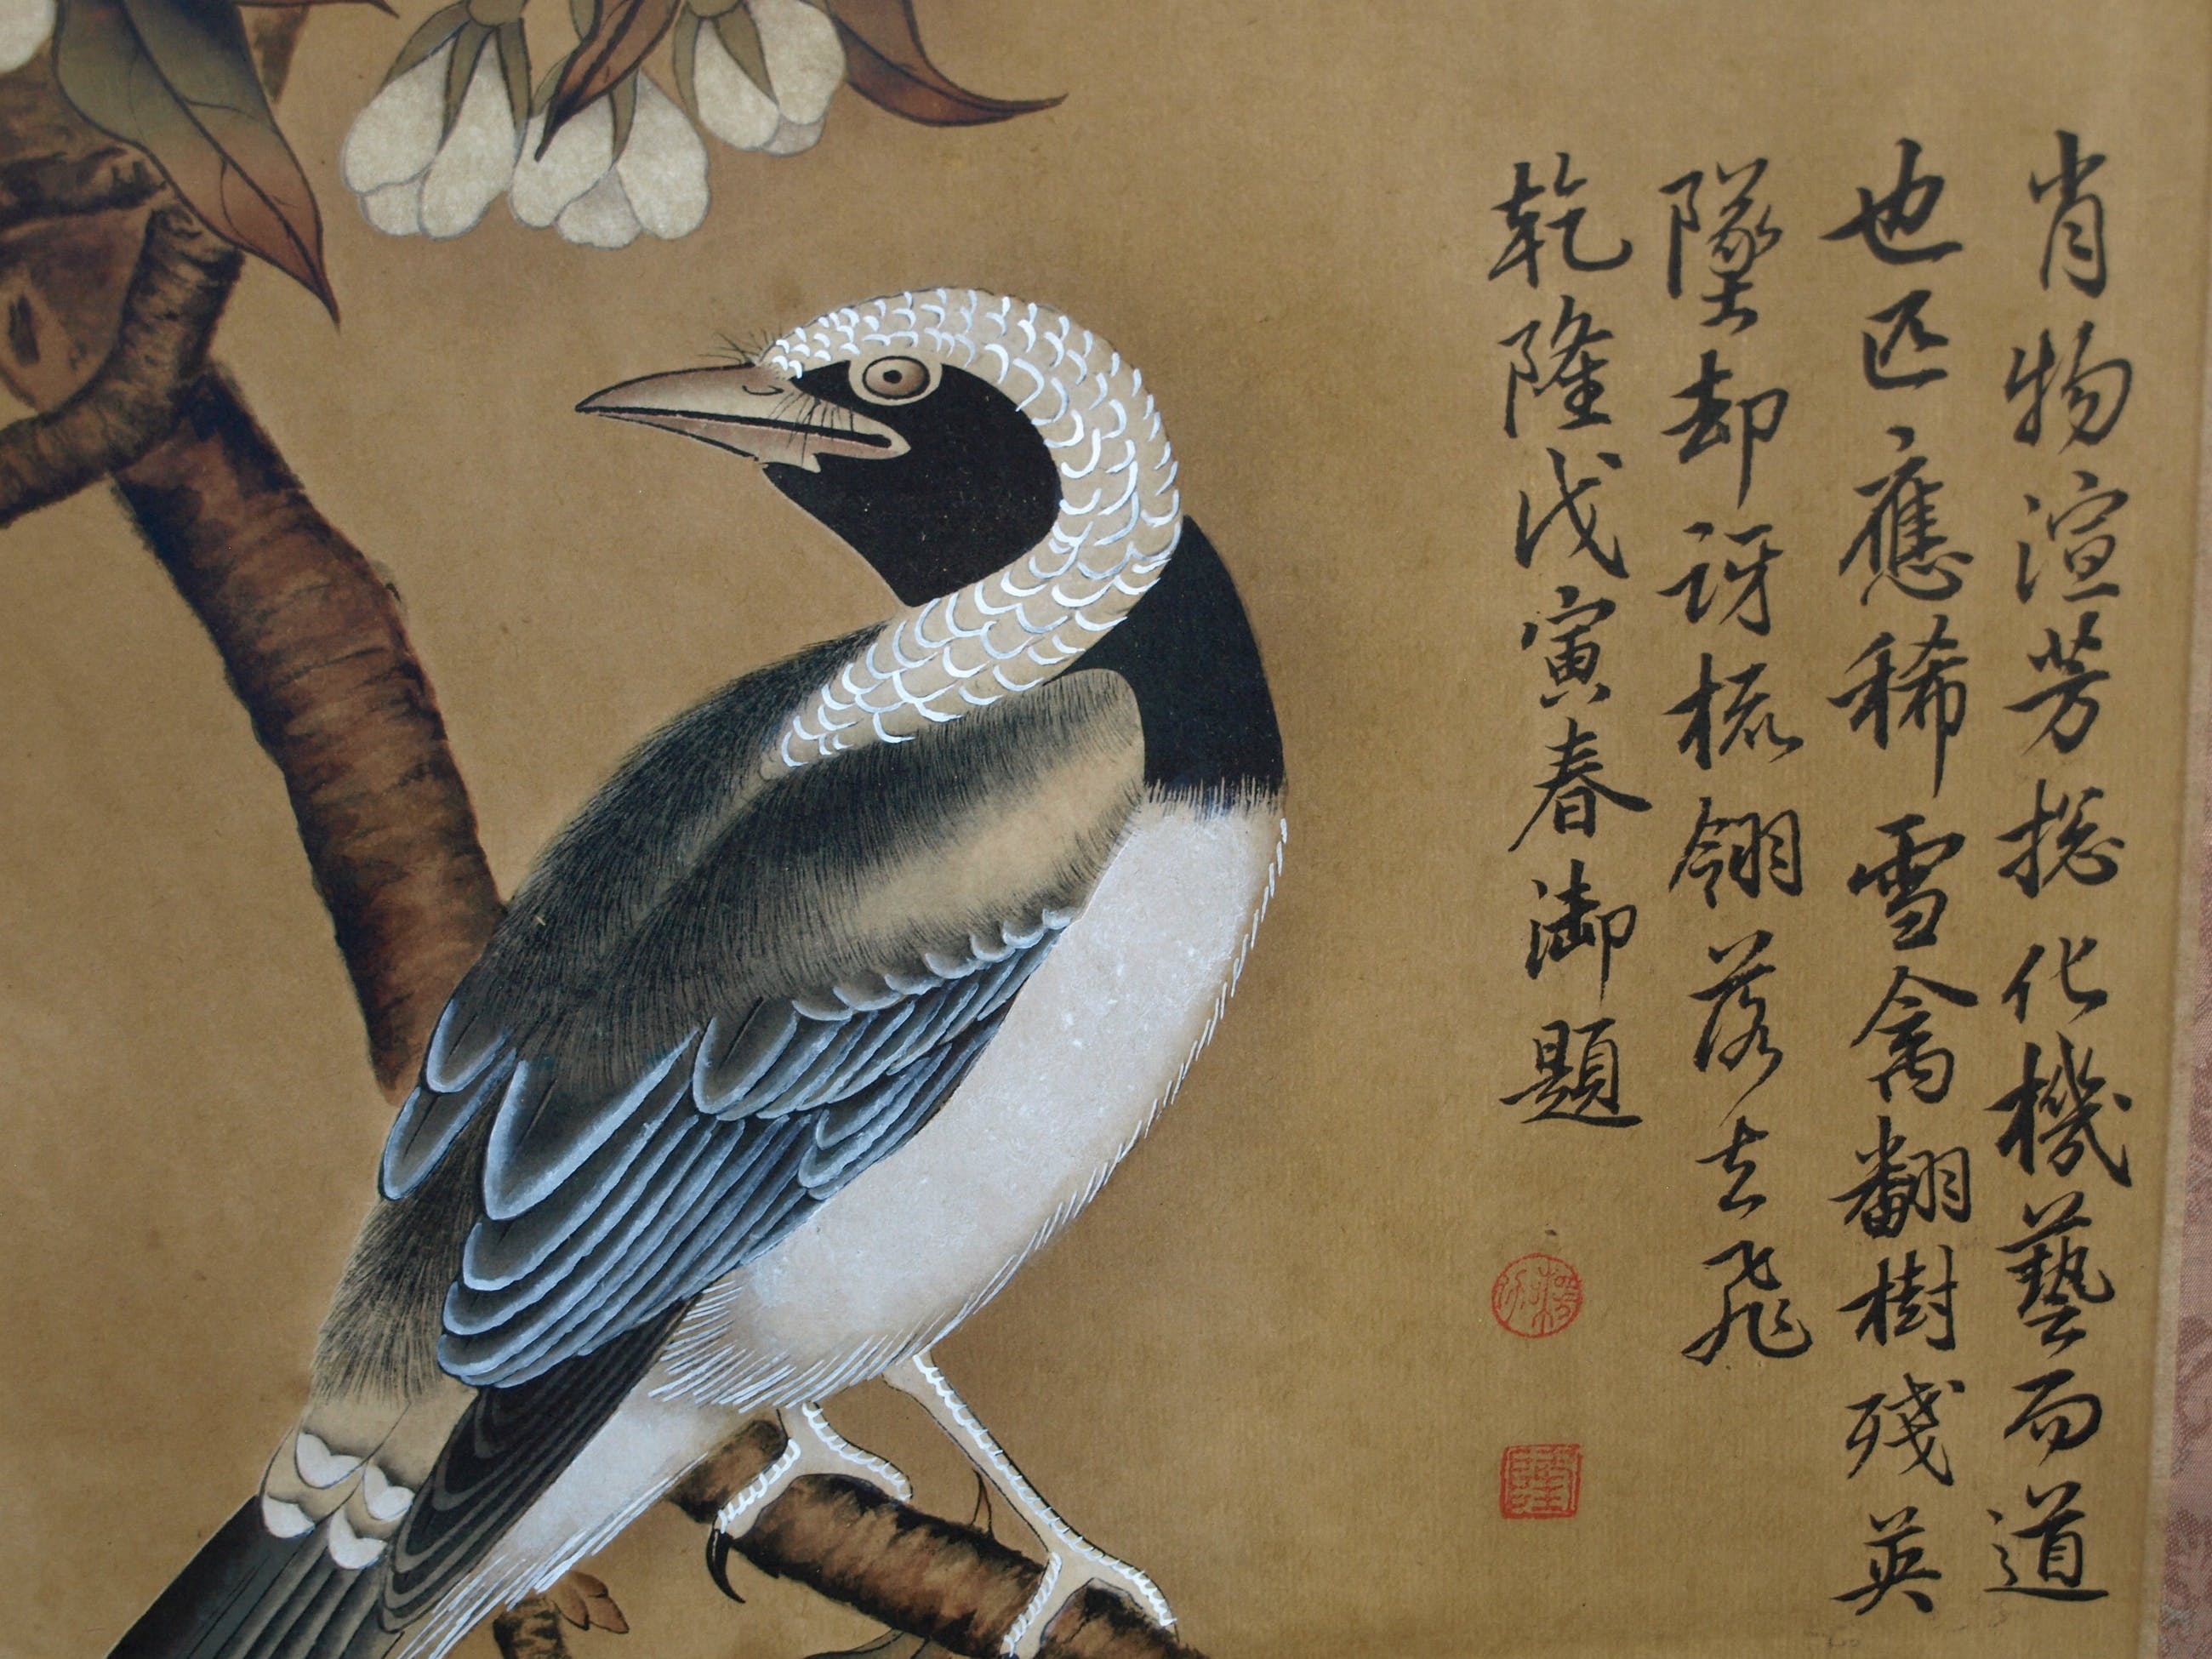 肖物渲芳揔化機藝而道
也匹應稀雪禽翻樹殘英
墜却訝梳翎落去飛
乾隆戊寅春御題